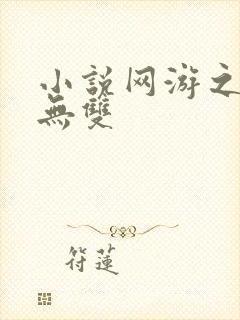 小説网游之
無雙
符蓮